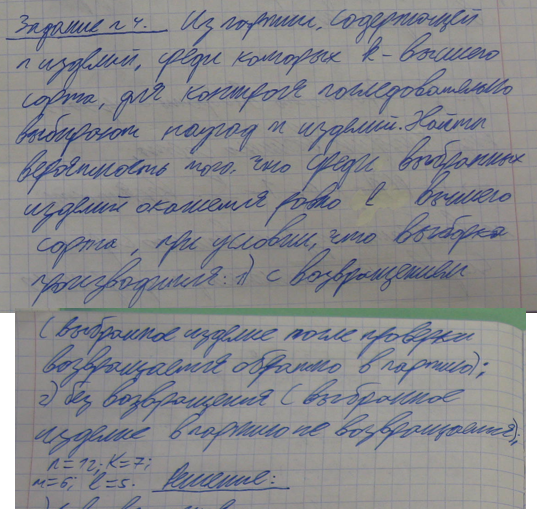 Задание №4. Из партии, содержащей
n изделий, среди которых k - высшего
сорта, для контроля последовательно
выбирают наугад m изделий. Найти
вероятность того, что среди выбранных
изделий окажется ровно l высшего
сорта, при условии, что выборка
производится: 1) с возвращением
(выбранное изделие после проверки
возвращается обратно в партию);
2) без возвращения (выбранное
изделие в партию не возвращается);
n=12; k=7;
m=6; l=5. Решение: